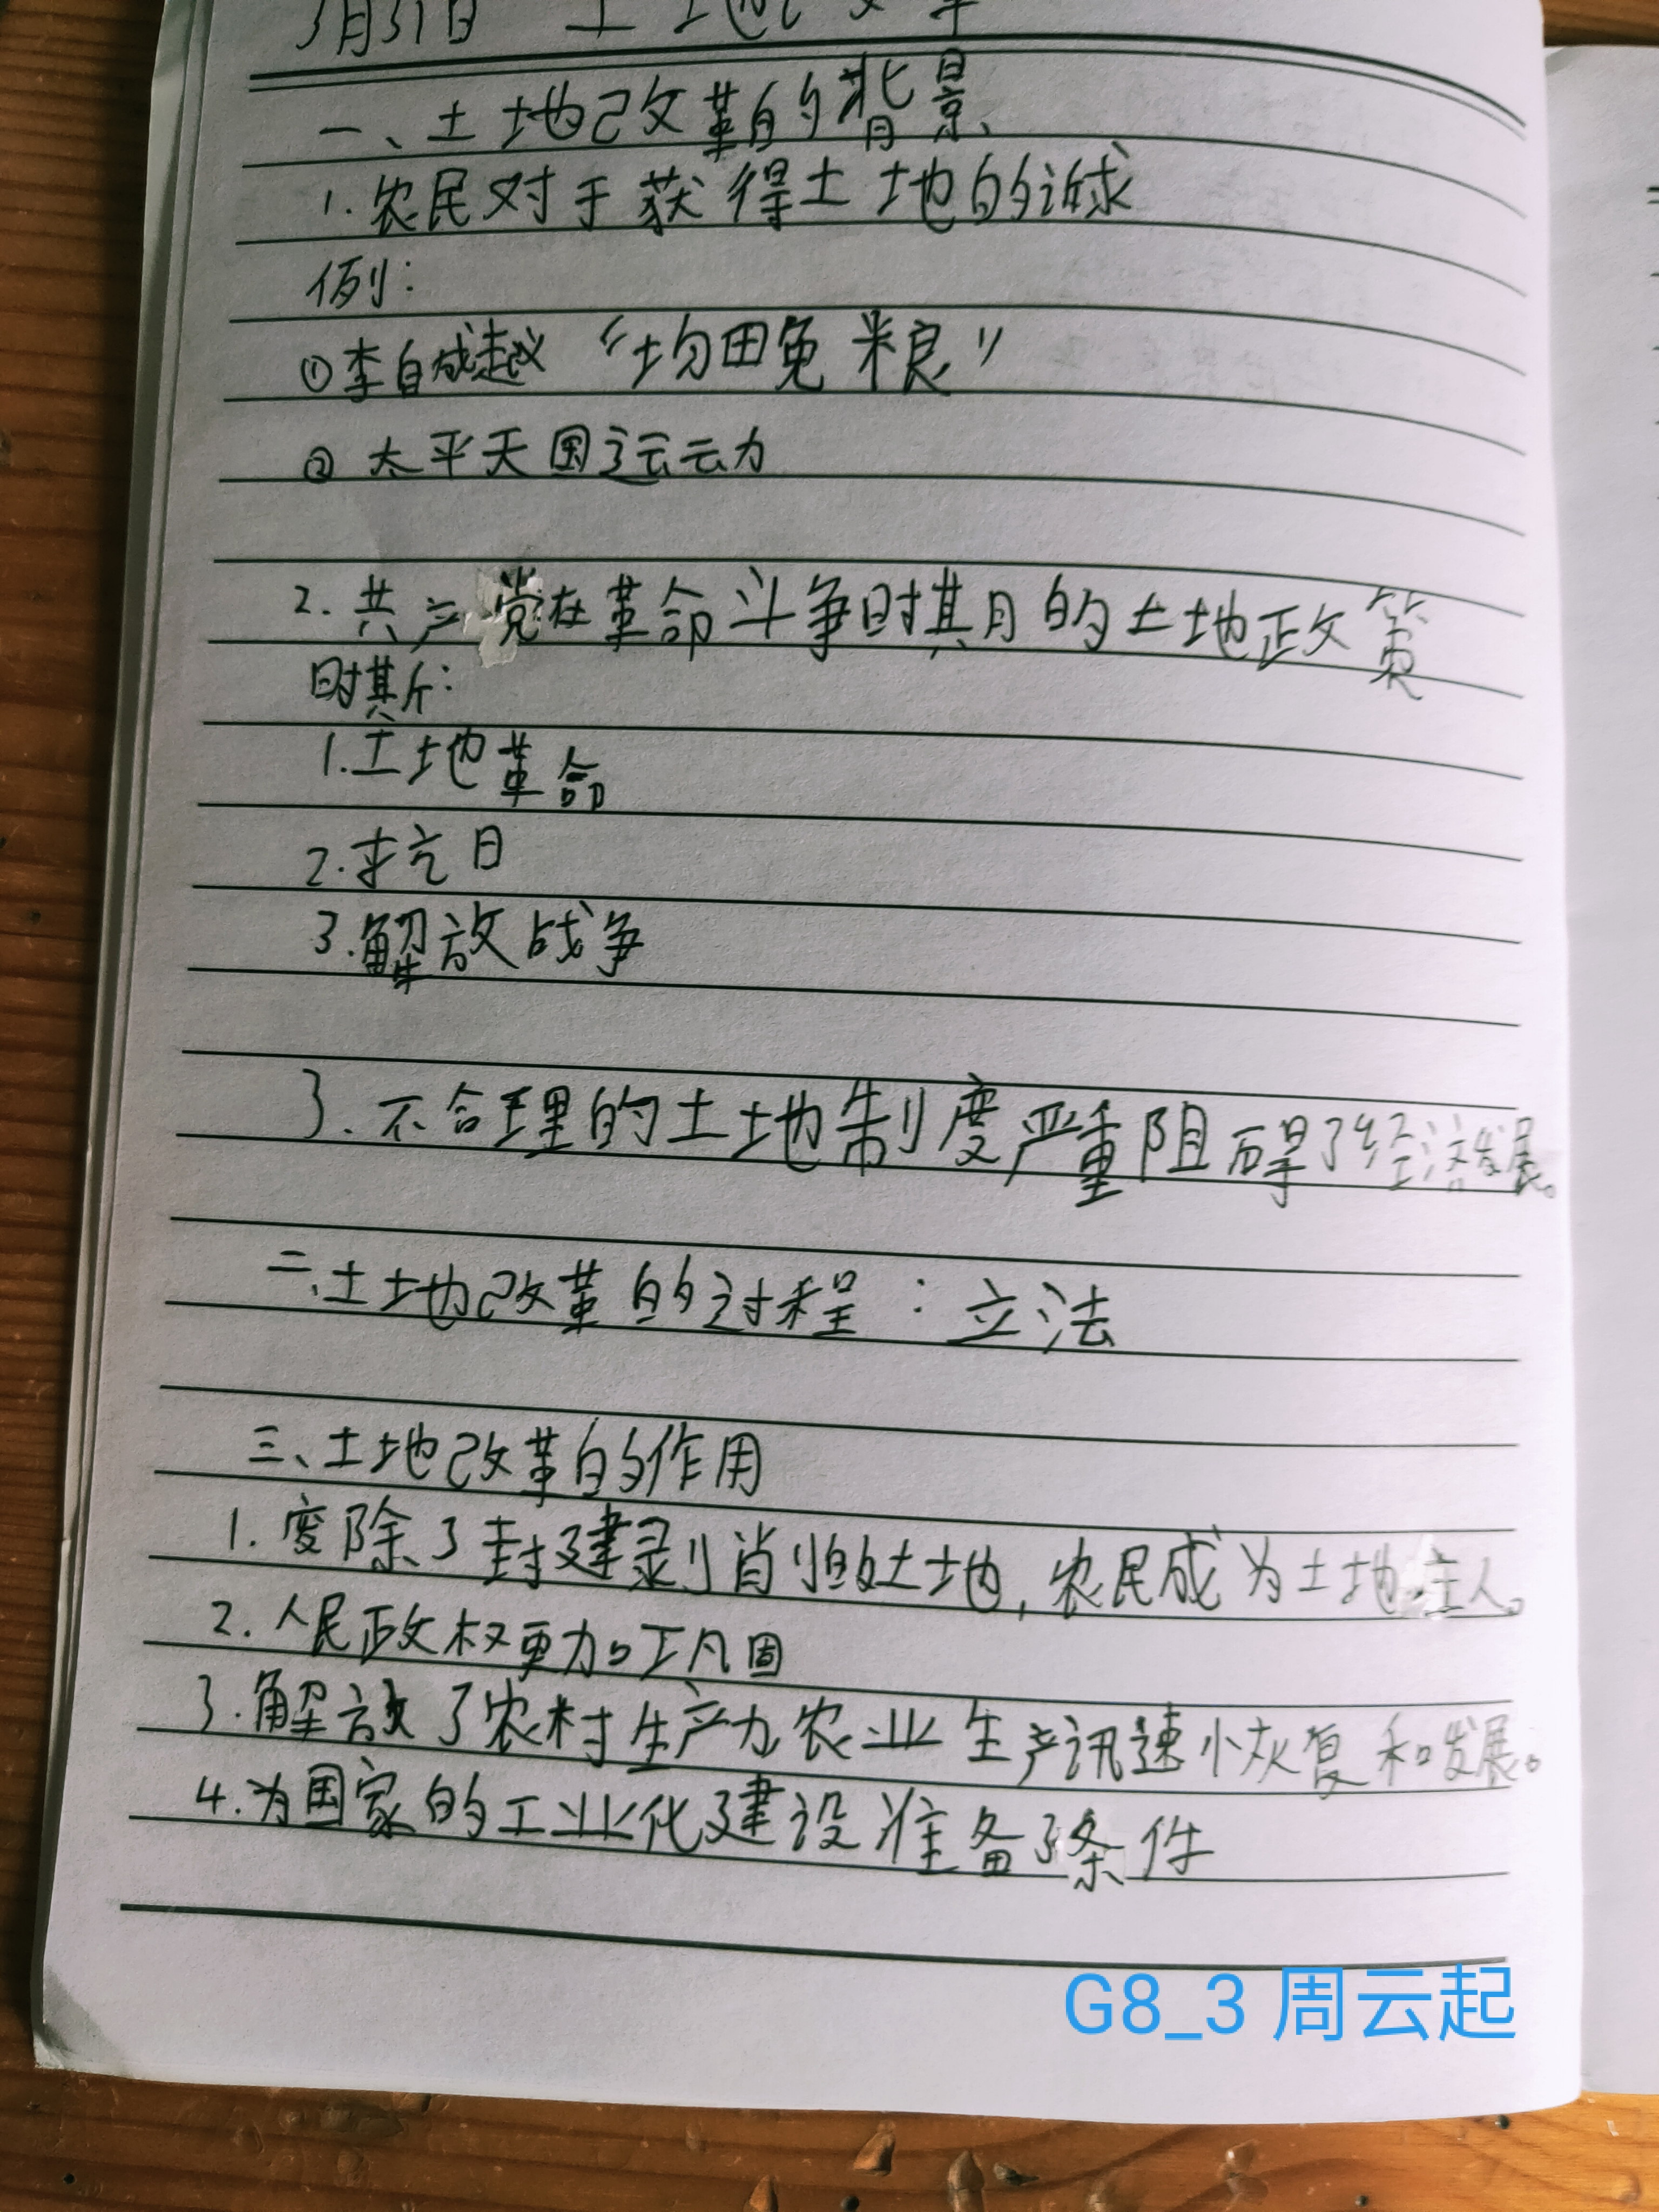 3月31日 土地改革
一、土地改革的背景
1.农民对于获得土地的诉求
例:
①李自成起义“均田免粮”
②太平天国运动
2.共产党在革命斗争时期的土地政策
时期:
1.土地革命
2.抗日
3.解放战争
3.不合理的土地制度严重阻碍了经济发展。
二、土地改革的过程:立法
三、土地改革的作用
1.废除了封建剥削的土地,农民成为土地主人。
2.人民政权更加巩固
3.解放了农村生产力农业生产讯速恢复和发展。
4.为国家的工业化建设准备了条件
G8_3 周云起